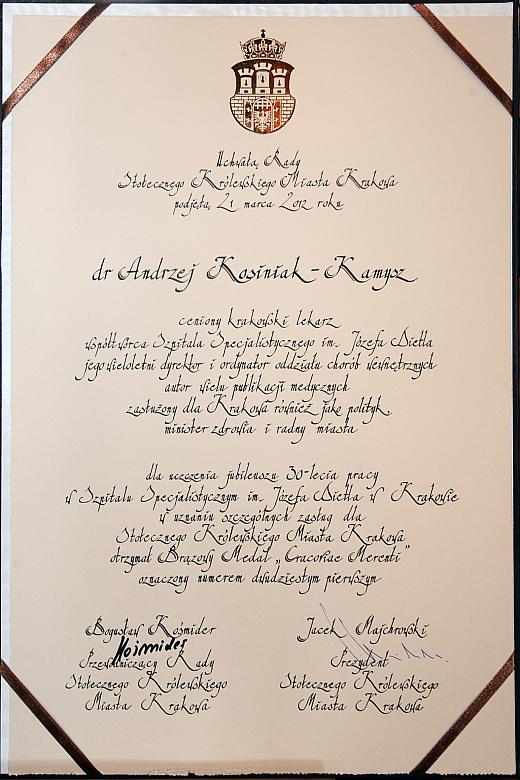 Uchwałą Rady
Stołecznego Królewskiego Miasta Krakowa
podjętą 21 marca 2012 roku
dr Andrzej Kosiniak-Kamysz
ceniony krakowski lekarz
współtwórca Szpitala Specjalistycznego im. Józefa Dietla
jego wieloletni dyrektor i ordynator oddziału chorób wewnętrznych
autor wielu publikacji medycznych
zasłużony dla Krakowa również jako polityk,
minister zdrowia i radny miasta
dla uczczenia jubileuszu 30-lecia pracy
w Szpitalu Specjalistycznym im. Józefa Dietla w Krakowie
w uznaniu szczególnych zasług dla
Stołecznego Królewskiego Miasta Krakowa
otrzymał Brązowy Medal „Cracoviae Merenti"
oznaczony numerem dwudziestym pierwszym
Bogusław Kośmider
Kośmider
Przewodniczący Rady
Stołecznego Królewskiego
Miasta Krakowa
Jacek Majchrowski
Prezydent
Stołecznego Królewskiego
Miasta Krakowa